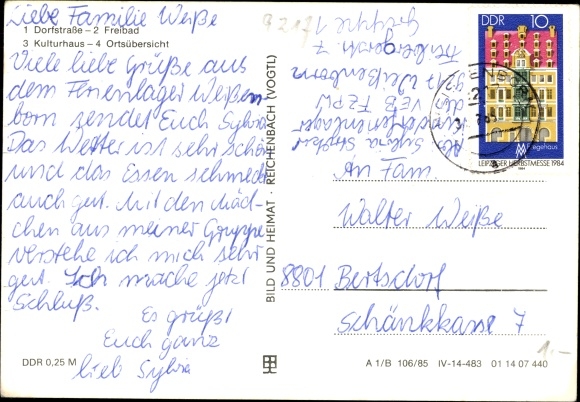 Liebe Familie Weiße
1 Dorfstraße – 2 Freibad
3 Kulturhaus – 4 Ortsübersicht
Viele liebe Grüße aus
dem Ferienlager Weißen-
born sendet Euch Sylvia
Das Wetter ist sehr schön
und das Essen schmeckt
auch gut. Mit den Mäd-
chen aus meiner Gruppe
verstehe ich mich sehr
gut. Ich mache jetzt
Schluß.
Es grüßt
Euch ganz
lieb Sylvia
DDR 0,25 M
BILD UND HEIMAT · REICHENBACH (VOGTL)
9217
Abs. Sylvia
Kinderferienlager
des VEB
9217 Weißenborn
Freibergerstr. 7
Gruppe 1
DDR 10
Fregehaus
MM
LEIPZIGER HERBSTMESSE 1984
1984
An Fam
Walter Weiße
8801 Bertsdorf
Schänkkasse 7
1.-
A 1/B 106/85 IV-14-483 01 14 07 440